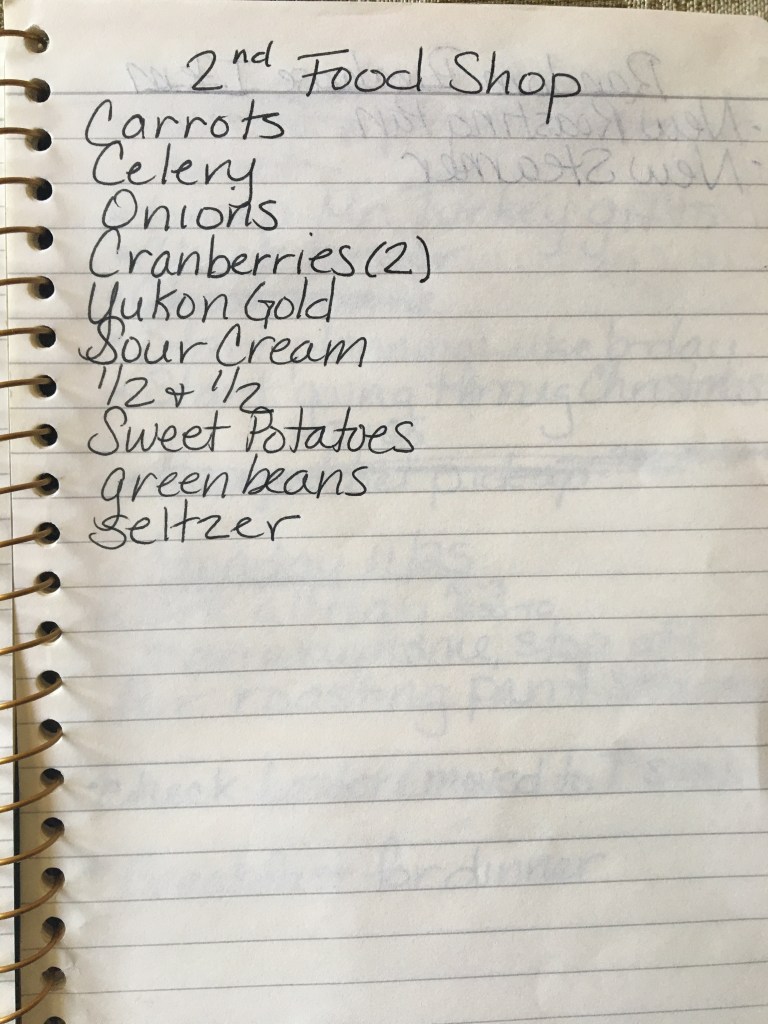 2nd Food Shop
Carrots
Celery
Onions
Cranberries (2)
Yukon Gold
Sour Cream
1/2 + 1/2
Sweet Potatoes
green beans
seltzer